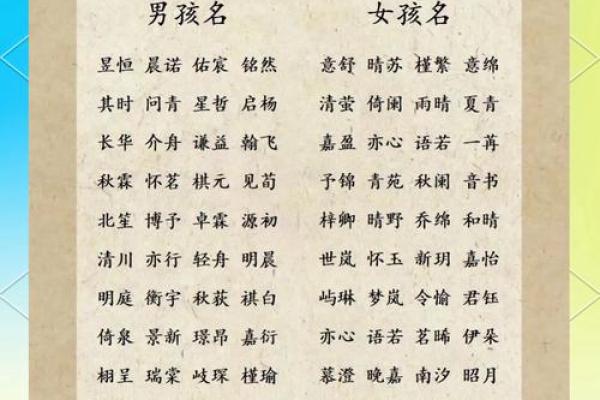 男孩名 女孩名
昱恒 晨诺 佑宸 铭然 意舒 晴苏 槿繁 意绵
其时 问青 星哲 启杨 清萤 倚阑 雨晴 夏青
长华 介舟 谦益 翰飞 嘉盈 亦心 语若 一苒
秋霖 怀茗 棋元 见荀 予锦 青苑 秋阑 音书
北笙 博予 卓霖 源初 梓卿 晴野 乔绵 和晴
清川 亦行 轻舟 明晨 世岚 怀玉 新玥 嘉怡
明庭 衡宇 秋荻 祺白 屿琳 梦岚 令愉 君钰
倚泉 景新 璟昂 嘉衍 亦心 语若 茗晞 伊朵
栩呈 瑞棠 岐琛 槿瑜 慕澄 晚嘉 南汐 昭月